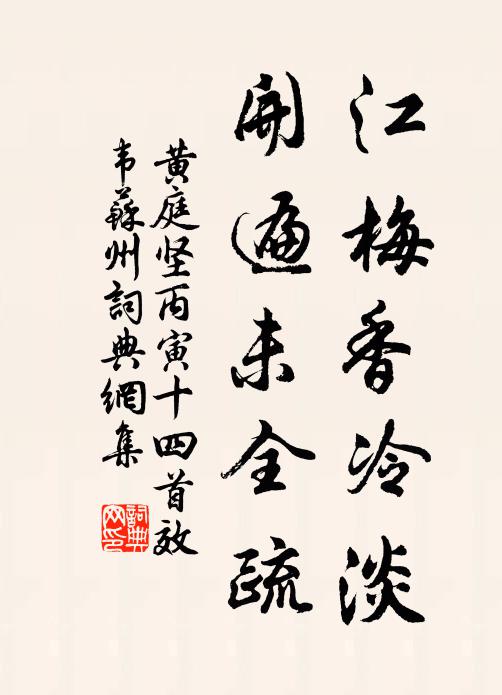 江梅香冷淡
開遍未全疏
黄庭坚丙寅十四首效
韦蘇州詞典網集
詞典网印